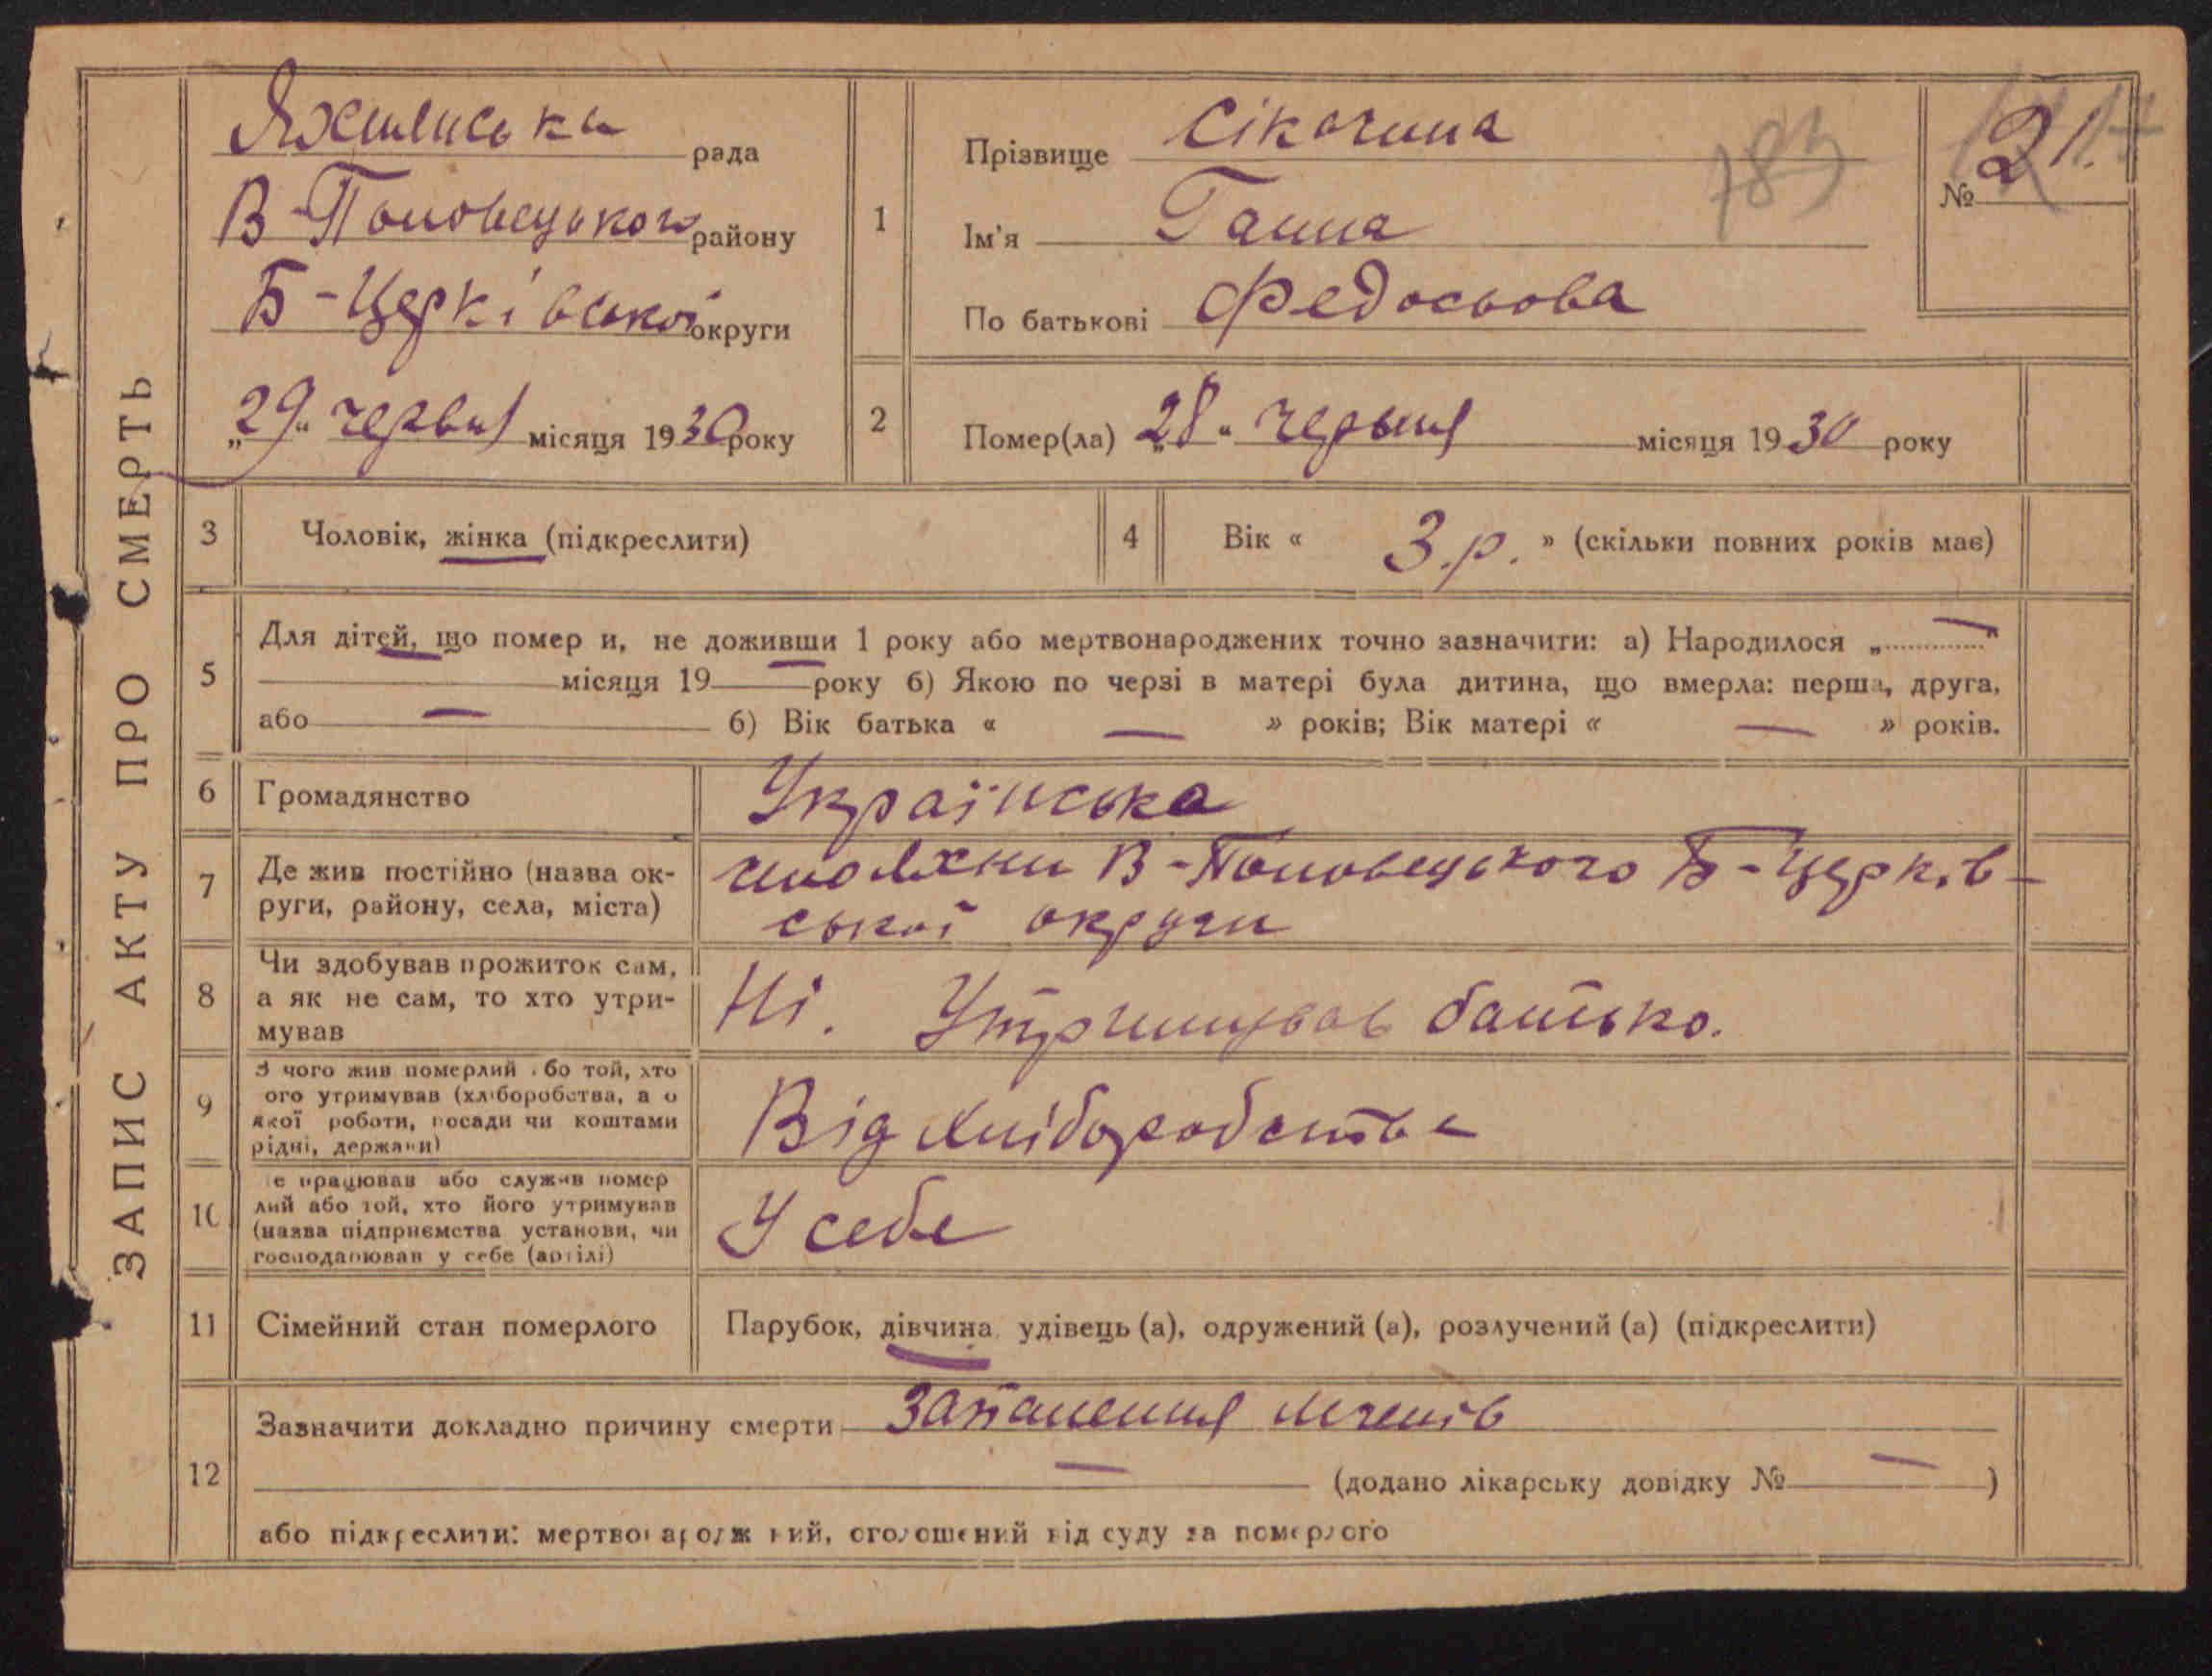 ЗАПИС АКТУ ПРО СМЕРТЬ
рада
В-Поповецького району
Б-Церківської округи
„29“ червня місяця 1930 року
1
Прізвище Сікочина
Ім'я Ганна
По батькові Федосьова
783
№ 21.
2
Помер(ла) „28“ червня місяця 1930 року
3 Чоловік, жінка (підкреслити)
4 Вік « 3.р. » (скільки повних років має)
5
Для дітей, що помер и, не доживши 1 року або мертвонароджених точно зазначити: а) Народилося „ — “
місяця 19— року б) Якою по черзі в матері була дитина, що вмерла: перша, друга,
або — б) Вік батька « — » років; Вік матері « — » років.
6 Громадянство Українська
7 Де жив постійно (назва ок-
руги, району, села, міста)
В-Поповецького Б-Церків-
ської округи
8 Чи здобував прожиток сам,
а як не сам, то хто утри-
мував
Ні. Утримував батько.
9 З чого жив померлий або той, хто
ого утримував (хліборобства, а о
якої роботи, посади чи коштами
рідні, держави)
Від хліборобства
10 е працював або служив помер
лий або той, хто його утримував
(назва підприємства установи, чи
господарював у себе (артілі)
У себе
11 Сімейний стан померлого Парубок, дівчина, удівець (а), одружений (а), розлучений (а) (підкреслити)
12
Зазначити докладно причину смерти Запалення легенів
— (додано лікарську довідку № — )
або підкреслити: мертвонароджений, оголошений від суду за померлого